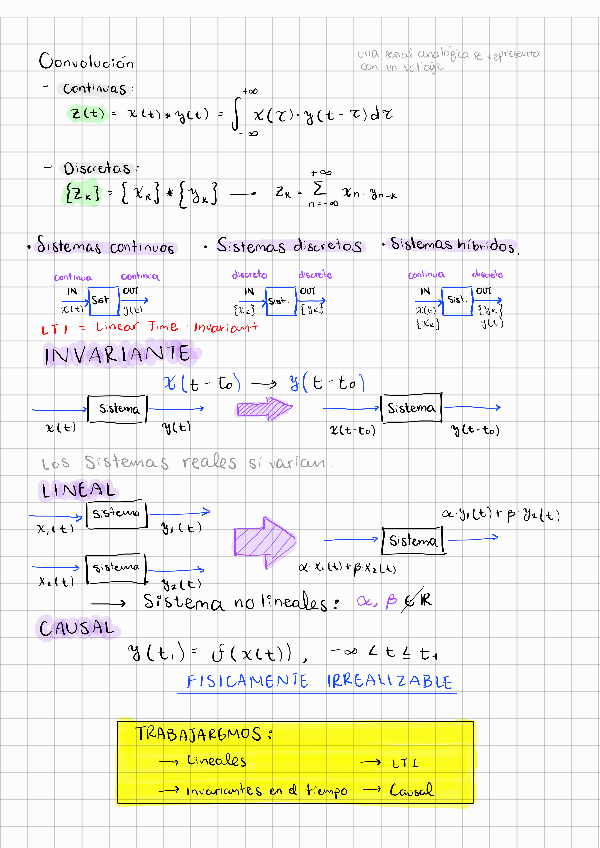 Convolución
una señal analógica se representa
con un voltaje
- Continuas:
z(t) = x(t) * y(t) = ∫_{-∞}^{+∞} x(τ)·y(t-τ)dτ
- Discretas:
{z_k} = {x_k} * {y_k} → z_k = Σ_{n=-∞}^{+∞} x_n · y_{n-k}
· Sistemas continuos · Sistemas discretos · Sistemas híbridos.
continua continua discreto discreto continua discreto
IN OUT IN OUT IN OUT
x(t) Sist y(t) {x_k} Sist. {y_k} x(t) Sist. {y_k}
{x_k} y(t)
LTI = Linear Time Invariant
INVARIANTE
x(t-t₀) → y(t-t₀)
Sistema Sistema
x(t) y(t) x(t-t₀) y(t-t₀)
Los sistemas reales si varian...
LINEAL
Sistema α·y₁(t)+β·y₂(t)
x₁(t) y₁(t)
Sistema
Sistema α·x₁(t)+β x₂(t)
x₂(t) y₂(t)
→ Sistema no lineales: α, β ∉ ℝ
CAUSAL
y(t₁) = f(x(t)), -∞ < t ≤ t₁
FISICAMENTE IRREALIZABLE
TRABAJAREMOS:
→ Lineales → LTI
→ Invariantes en el tiempo → Causal